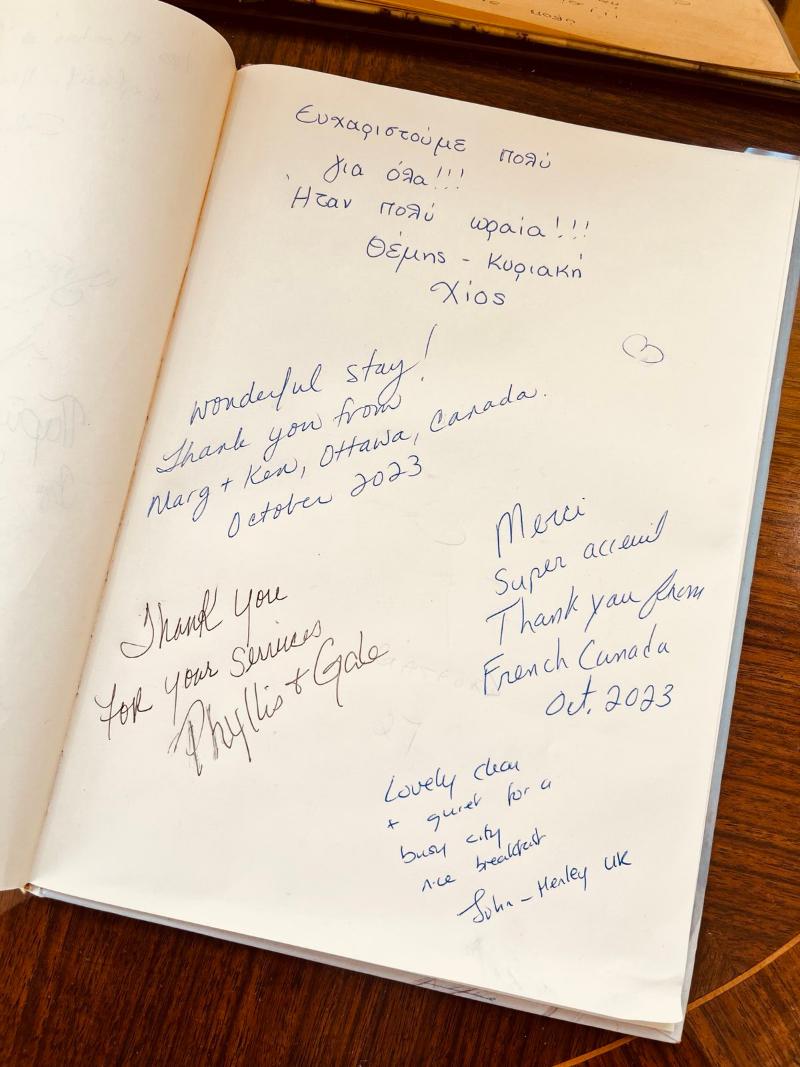 Ευχαριστούμε πολύ
για όλα!!!
Ήταν πολύ ωραία!!!
Θέμης - Κυριακή
Χίος
wonderful stay!
Thank you from
Marg + Ken, Ottawa, Canada.
October 2023
Merci
Super acceuil
Thank you from
French Canada
Oct. 2023
Thank you
for your services
Phyllis + Gale
Lovely clean
+ quiet for a
busy city
nice breakfast
John - Henley UK